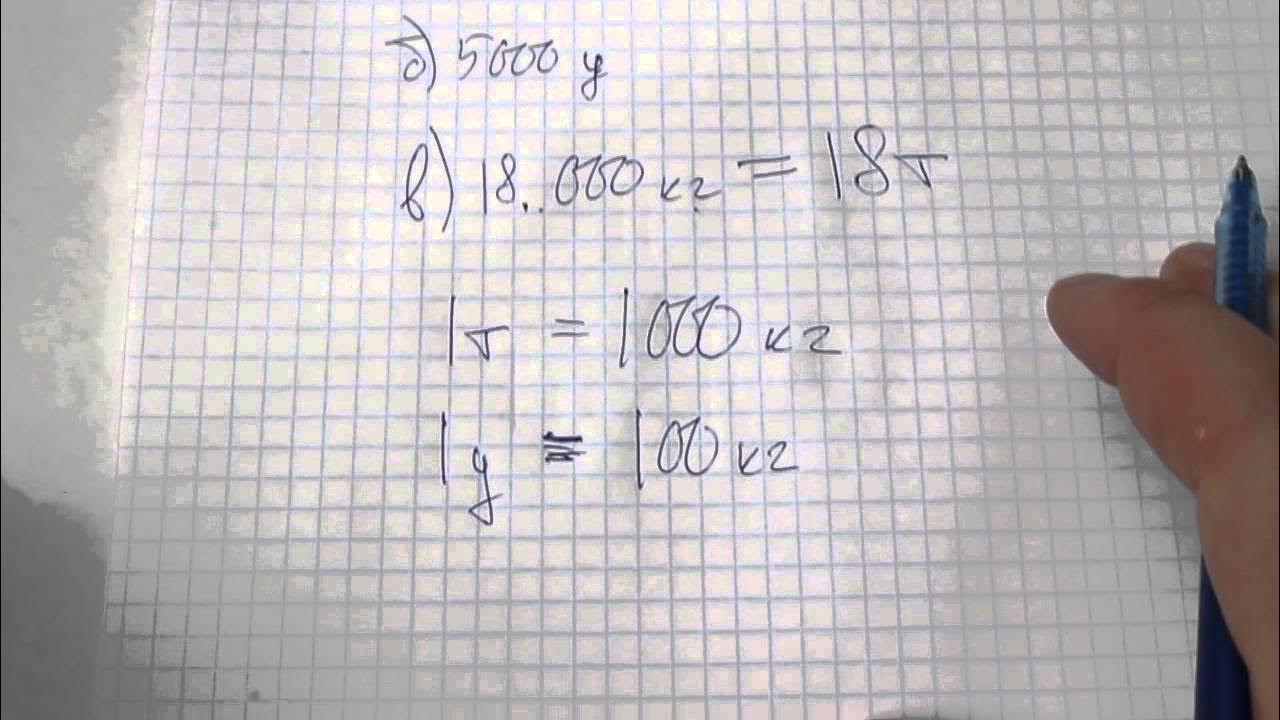 б) 5000 ц
в) 18..000 кг = 18т
1т = 1000 кг
1ц = 100 кг